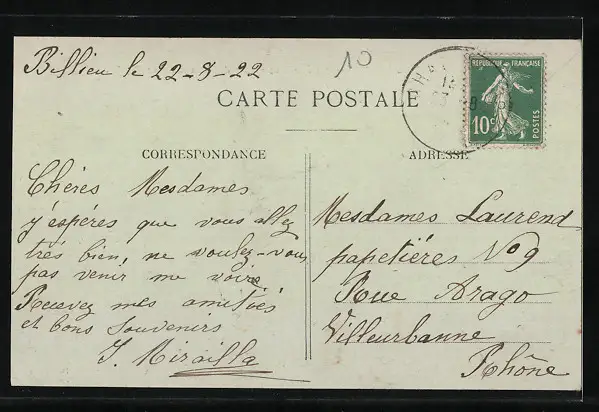 Billieu le 22-8-22
10
CARTE POSTALE
REPUBLIQUE FRANÇAISE
10c
POSTES
CORRESPONDANCE
Chères Mesdames
j'éspéres que vous allez
très bien, ne voulez-vous
pas venir me voire
Recevez mes amitiés
et bons Souvenirs
J. Mirailla
ADRESSE
Mesdames Laurend
papetiéres No 9
Rue Arago
Villeurbanne
Rhône